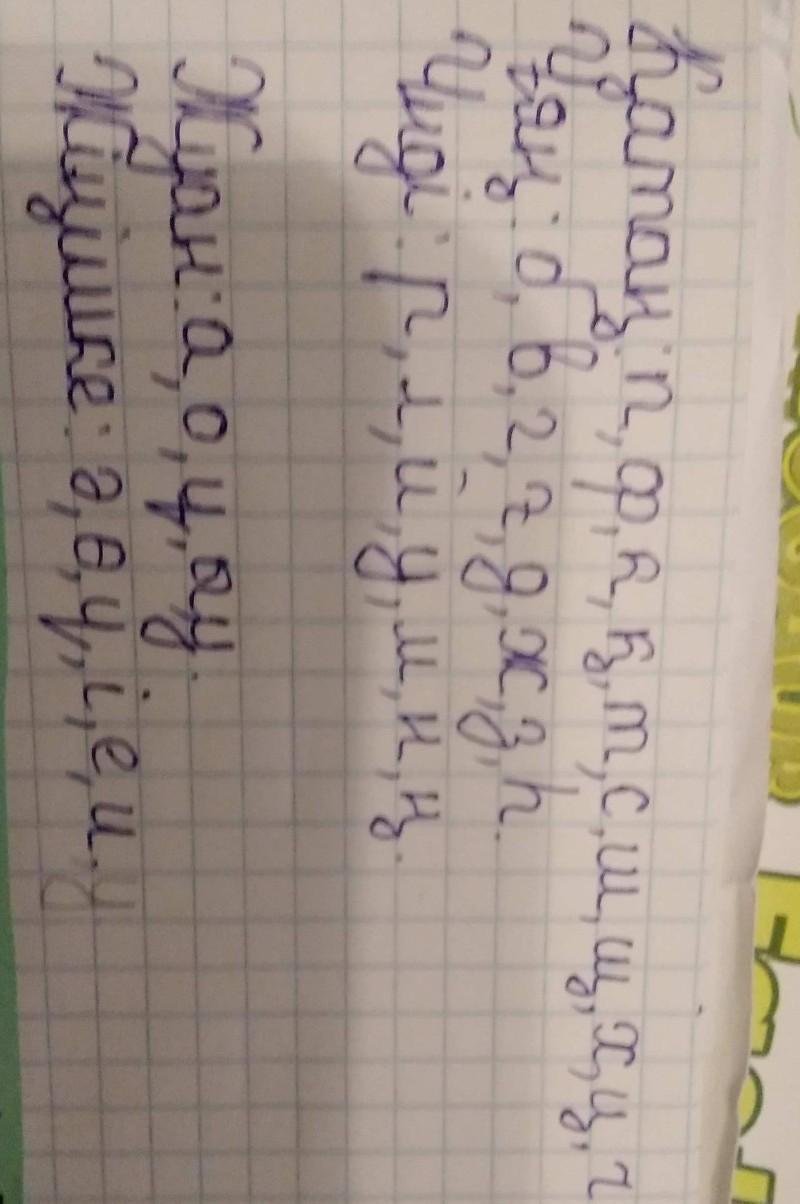 Қатаң: п, ф, к, қ, т, с, ш, щ, х, ц, ч
Ұяң: б, в, г, ғ, д, ж, з, һ.
Үнді: р, л, й, у, м, н, ң.
Жуан: а, о, ұ, ы, у.
Жіңішке: ә, ө, ү, і, е, и.